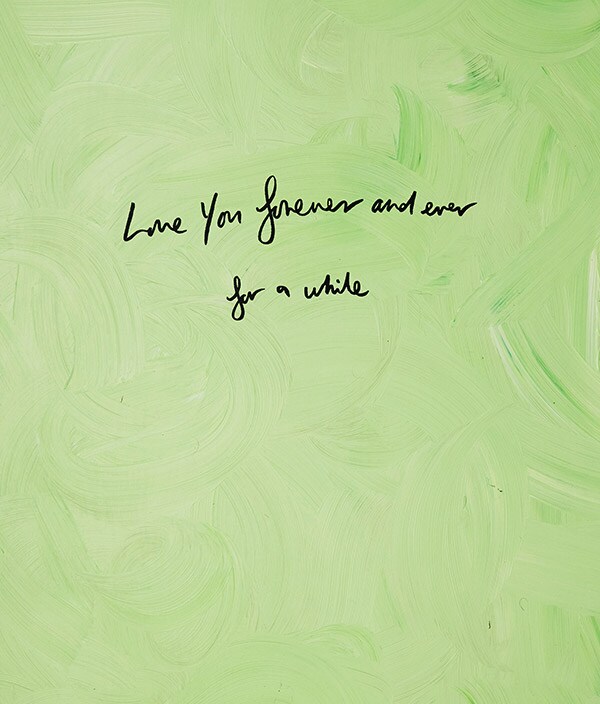 Love You forever and ever
for a while